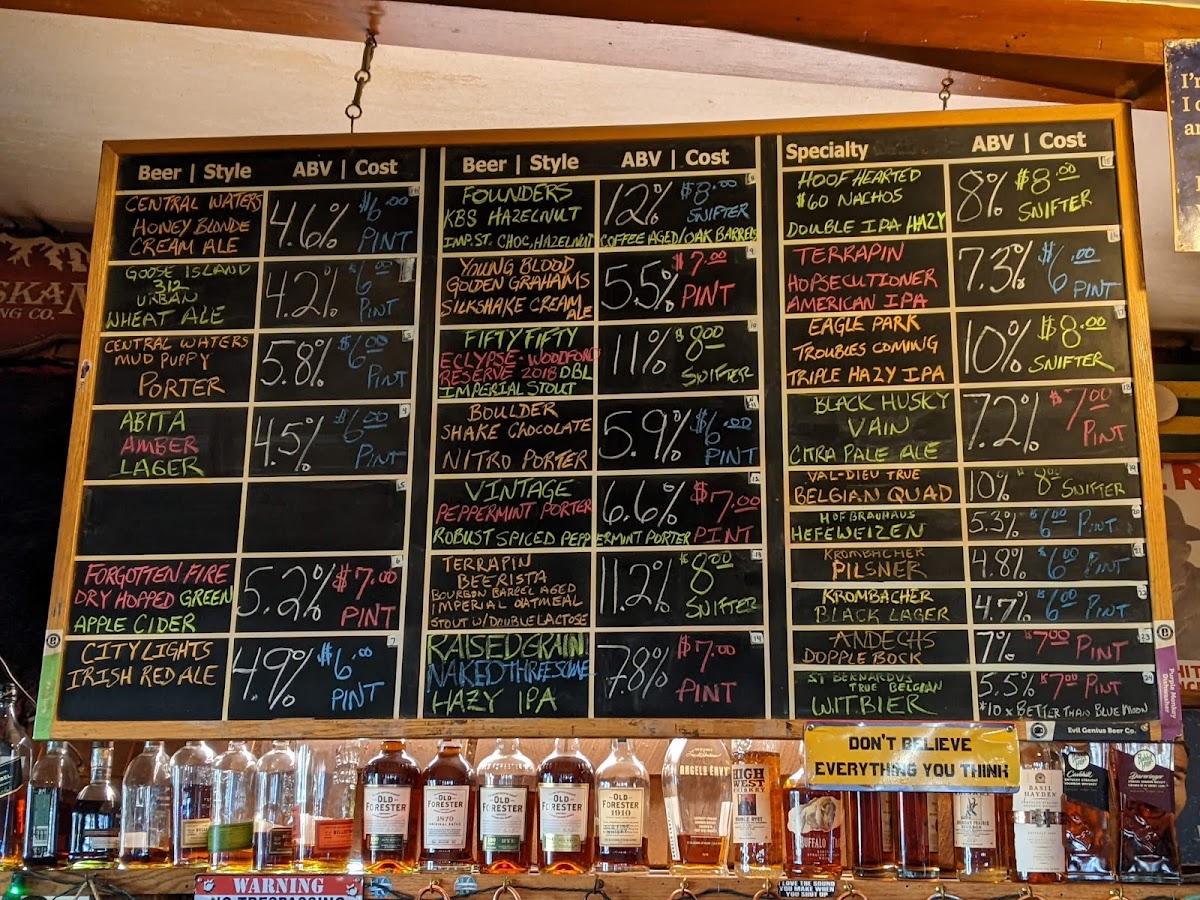 Beer | Style ABV | Cost
CENTRAL WATERS
HONEY BLONDE
CREAM ALE
4.6% $6.00
PINT
GOOSE ISLAND
312
URBAN
WHEAT ALE
4.2% 6.00
PINT
3
CENTRAL WATERS
MUD PUPPY
PORTER
5.8% $6.00
PINT
4
ABITA
AMBER
LAGER
4.5% $6.00
PINT
5
6
FORGOTTEN FIRE
DRY HOPPED GREEN
APPLE CIDER
5.2% $7.00
PINT
7
CITY LIGHTS
IRISH RED ALE
4.9% $6.00
PINT
Beer | Style ABV | Cost
FOUNDERS
KBS HAZELNUT
IMP. ST. CHOC, HAZELNUT COFFEE AGED/OAK BARRELS
12% $8.00
SNIFTER
9
YOUNG BLOOD
GOLDEN GRAHAMS
SILKSHAKE CREAM ALE
5.5% $7.00
PINT
10
FIFTY FIFTY
ECLYPSE - WOODFORD
RESERVE 2018 DBL
IMPERIAL STOUT
11% $8.00
SNIFTER
BOULDER
SHAKE CHOCOLATE
NITRO PORTER
5.9% $6.00
PINT
12
VINTAGE
PEPPERMINT PORTER
ROBUST SPICED PEPPERMINT PORTER
6.6% $7.00
PINT
13
TERRAPIN
BEERISTA
BOURBON BARREL AGED
IMPERIAL OATMEAL
STOUT W/DOUBLE LACTOSE
11.2% $8.00
SNIFTER
14
RAISED GRAIN
NAKED THREESOME
HAZY IPA
7.8% $7.00
PINT
Specialty ABV | Cost
HOOF HEARTED
$60 NACHOS
DOUBLE IPA HAZY
8% $8.00
SNIFTER
TERRAPIN
HOPSECUTIONER
AMERICAN IPA
7.3% $6.00
PINT
17
EAGLE PARK
TROUBLES COMING
TRIPLE HAZY IPA
10% $8.00
SNIFTER
18
BLACK HUSKY
VAIN
CITRA PALE ALE
7.2% $7.00
PINT
19
VAL-DIEU TRUE
BELGIAN QUAD
10% $8.00 SNIFTER
20
HOFBRAUHAUS
HEFEWEIZEN
5.3% $6.00 PINT
21
KROMBACHER
PILSNER
4.8% $6.00 PINT
22
KROMBACHER
BLACK LAGER
4.7% $6.00 PINT
23
ANDECHS
DOPPLE BOCK
7% $7.00 PINT
24
ST BERNARDUS
TRUE BELGIAN
WITBIER
5.5% $7.00 PINT
*10 X BETTER THAN BLUE MOON
Purple Monkey
Dishwasher
Evil Genius Beer Co.
DON'T BELIEVE
EVERYTHING YOU THINK
OLD
FORESTER
OLD
FORESTER
1870
OLD
FORESTER
OLD
FORESTER
OLD
FORESTER
1910
ANGEL'S ENVY
HIGH
WEST
BUFFALO
BASIL
HAYDEN
WARNING
NO TRESPASSING
I LOVE THE SOUND
YOU MAKE WHEN
YOU SHUT UP